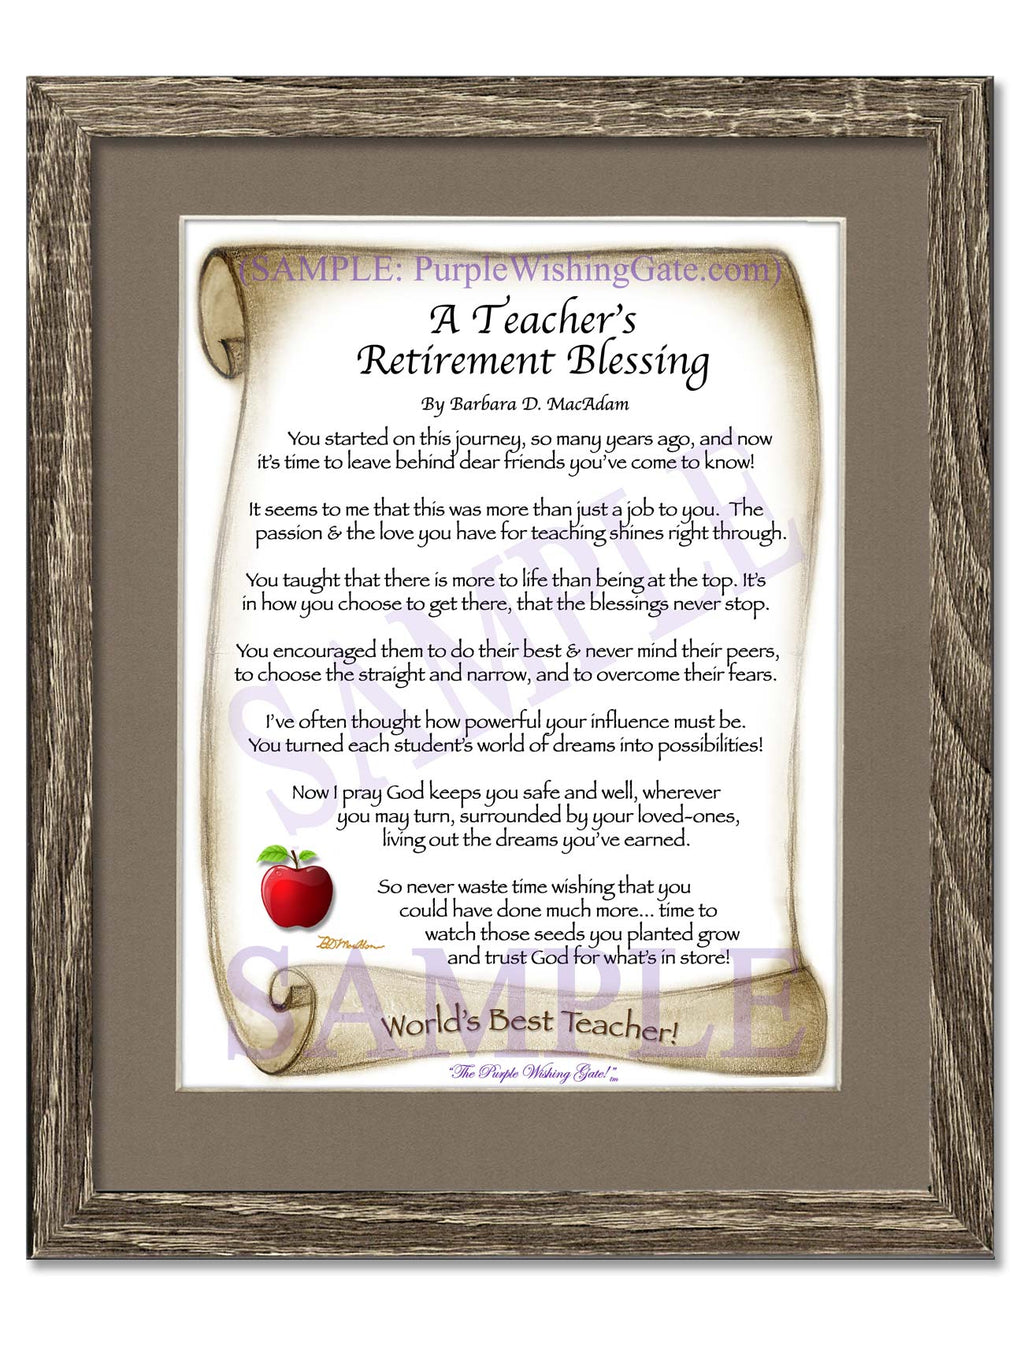 (SAMPLE: PurpleWishingGate.com)
A Teacher's
Retirement Blessing
By Barbara D. MacAdam
You started on this journey, so many years ago, and now
it's time to leave behind dear friends you've come to know!
It seems to me that this was more than just a job to you. The
passion & the love you have for teaching shines right through.
You taught that there is more to life than being at the top. It's
in how you choose to get there, that the blessings never stop.
You encouraged them to do their best & never mind their peers,
to choose the straight and narrow, and to overcome their fears.
I've often thought how powerful your influence must be.
You turned each student's world of dreams into possibilities!
Now I pray God keeps you safe and well, wherever
you may turn, surrounded by your loved-ones,
living out the dreams you've earned.
So never waste time wishing that you
could have done much more... time to
watch those seeds you planted grow
and trust God for what's in store!
SAMPLE
SAMPLE
World's Best Teacher!
"The Purple Wishing Gate!"™